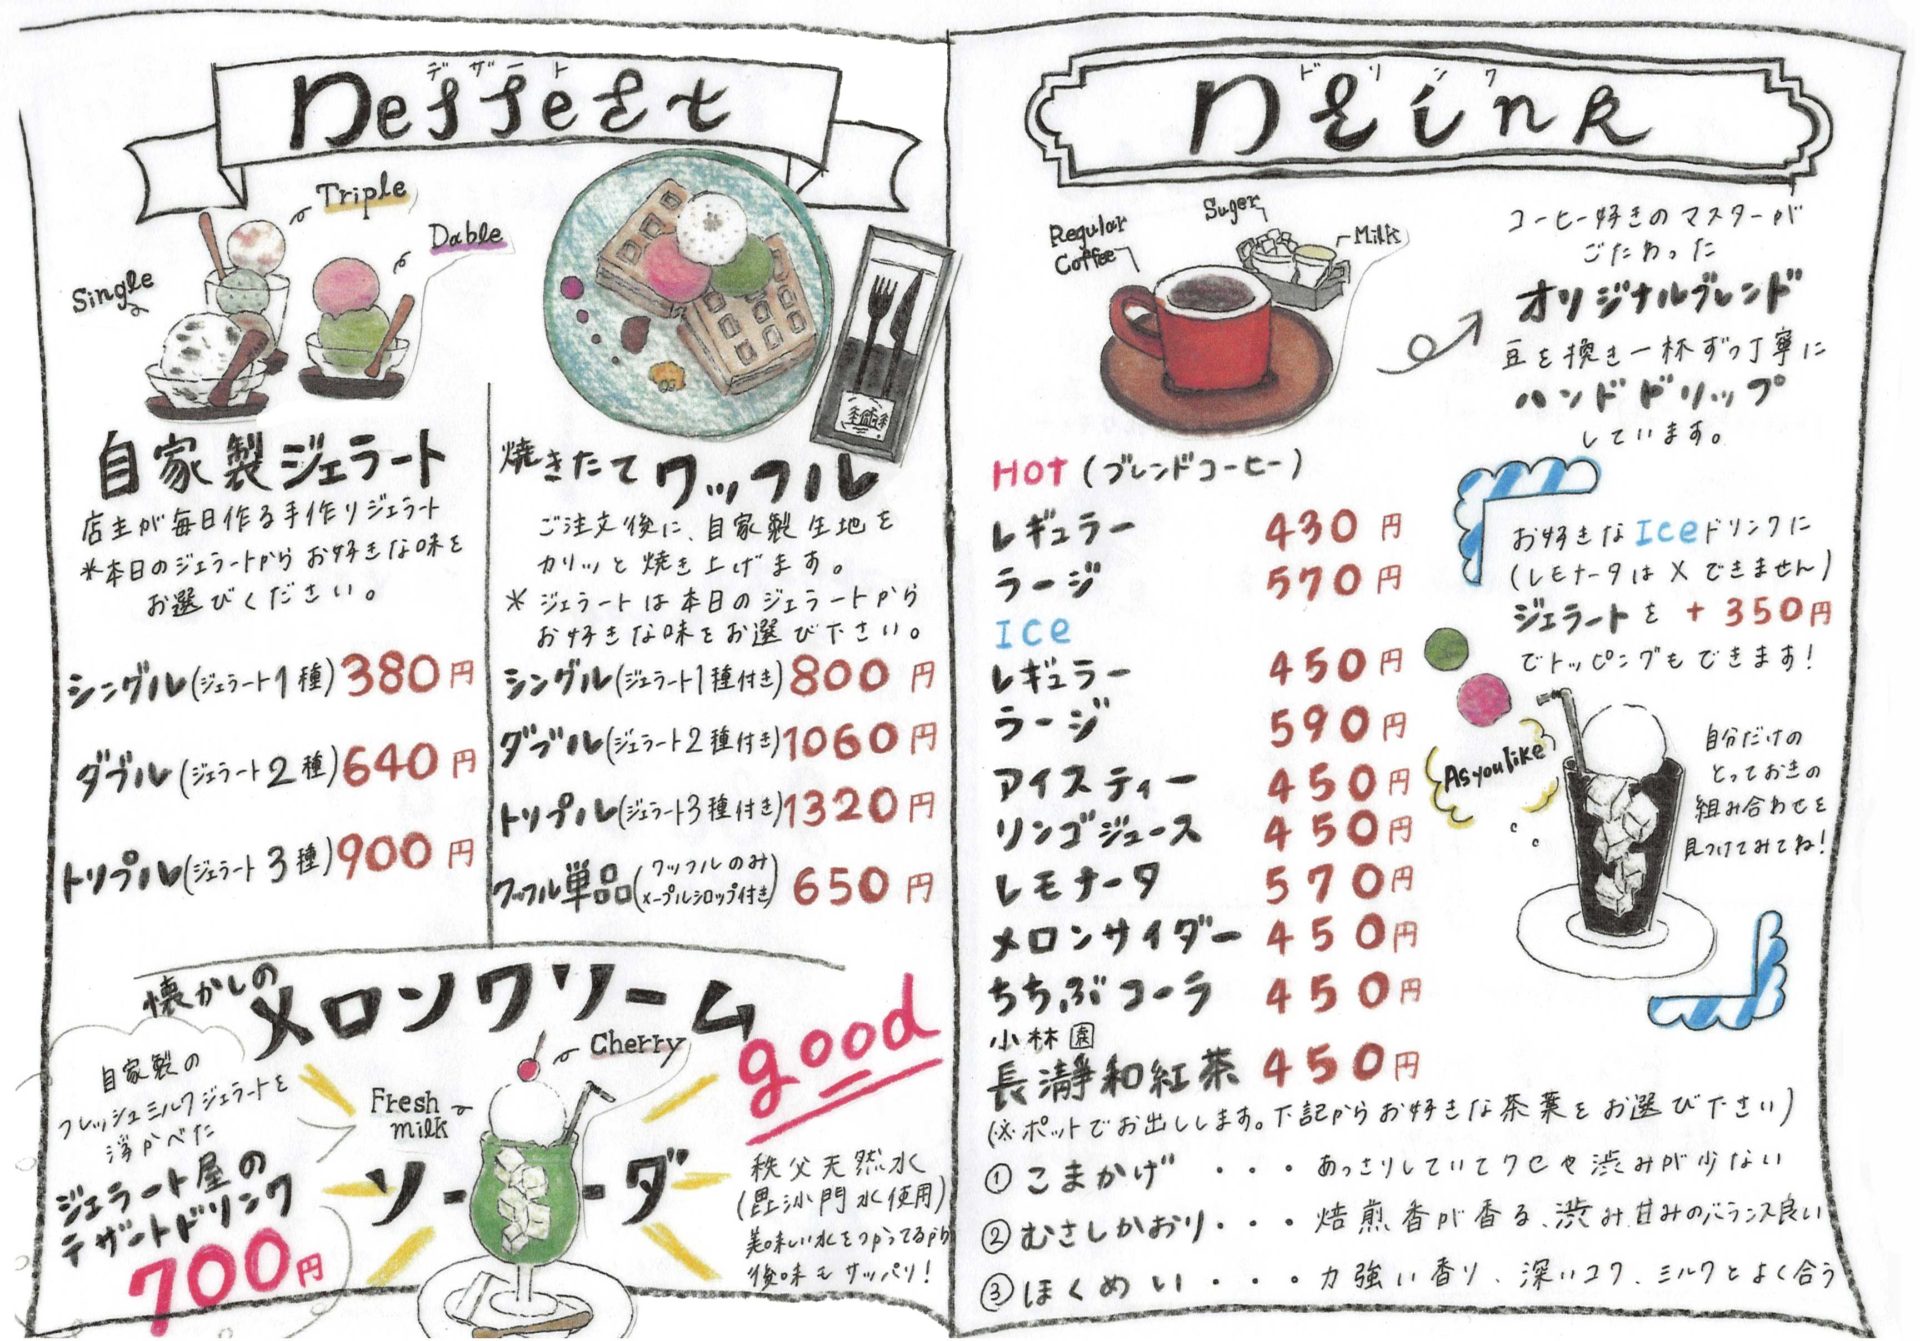 デザート
Dessert
Triple
Dable
Single
自家製ジェラート
店主が毎日作る手作りジェラート
*本日のジェラートからお好きな味を
お選びください。
シングル(ジェラート1種)380円
ダブル(ジェラート2種)640円
トリプル(ジェラート3種)900円
焼きたてワッフル
ご注文後に、自家製生地を
カリッと焼き上げます。
*ジェラートは本日のジェラートから
お好きな味をお選び下さい。
シングル(ジェラート1種付き)800円
ダブル(ジェラート2種付き)1060円
トリプル(ジェラート3種付き)1320円
ワッフル単品(ワッフルのみ
メープルシロップ付き)650円
懐かしの
メロンクリーム
ソーダ
good
Cherry
Fresh
milk
自家製の
フレッシュミルクジェラートを
浮かべた
ジェラート屋の
デザートドリンク
700円
秩父天然水
(毘沙門水使用)
美味しい水をつかってるから
後味もサッパリ!
ドリンク
Drink
Regular
Coffee
Suger
Milk
コーヒー好きのマスターが
こだわった
オリジナルブレンド
豆を挽き一杯ずつ丁寧に
ハンドドリップ
しています。
HOT(ブレンドコーヒー)
レギュラー 430円
ラージ 570円
Ice
レギュラー 450円
ラージ 590円
アイスティー 450円
リンゴジュース 450円
レモナータ 570円
メロンサイダー 450円
ちちぶコーラ 450円
小林園
長瀞和紅茶 450円
(※ポットでお出しします。下記からお好きな茶葉をお選び下さい)
①こまかげ・・・あっさりしていてクセや渋みが少ない
②むさしかおり・・・焙煎香が香る、渋み甘みのバランス良い
③ほくめい・・・力強い香り、深いコク、ミルクとよく合う
お好きなIceドリンクに
(レモナータは×できません)
ジェラートを+350円
でトッピングもできます!
As you like
自分だけの
とっておきの
組み合わせを
見つけてみてね!